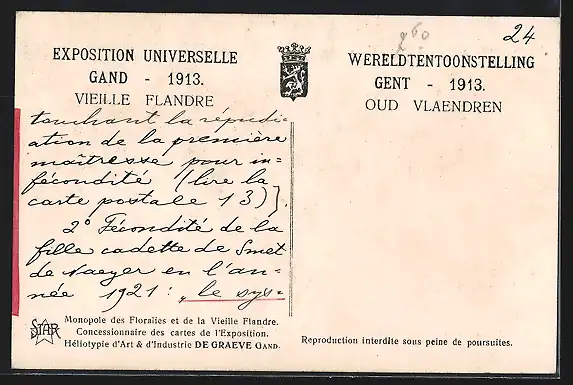 24
260
EXPOSITION UNIVERSELLE
GAND - 1913.
VIEILLE FLANDRE
WERELDTENTOONSTELLING
GENT - 1913.
OUD VLAENDREN
touchant la répudi=
ation de la première
maîtresse pour in=
fécondité (lire la
carte postale 13)].
2° Fécondité de la
fille cadette de Smet
de Naeyer en l'an-
née 1921: „le sys=
STAR
Monopole des Floralies et de la Vieille Flandre.
Concessionnaire des cartes de l'Exposition.
Héliotypie d'Art & d'Industrie DE GRAEVE GAND.
Reproduction interdite sous peine de poursuites.